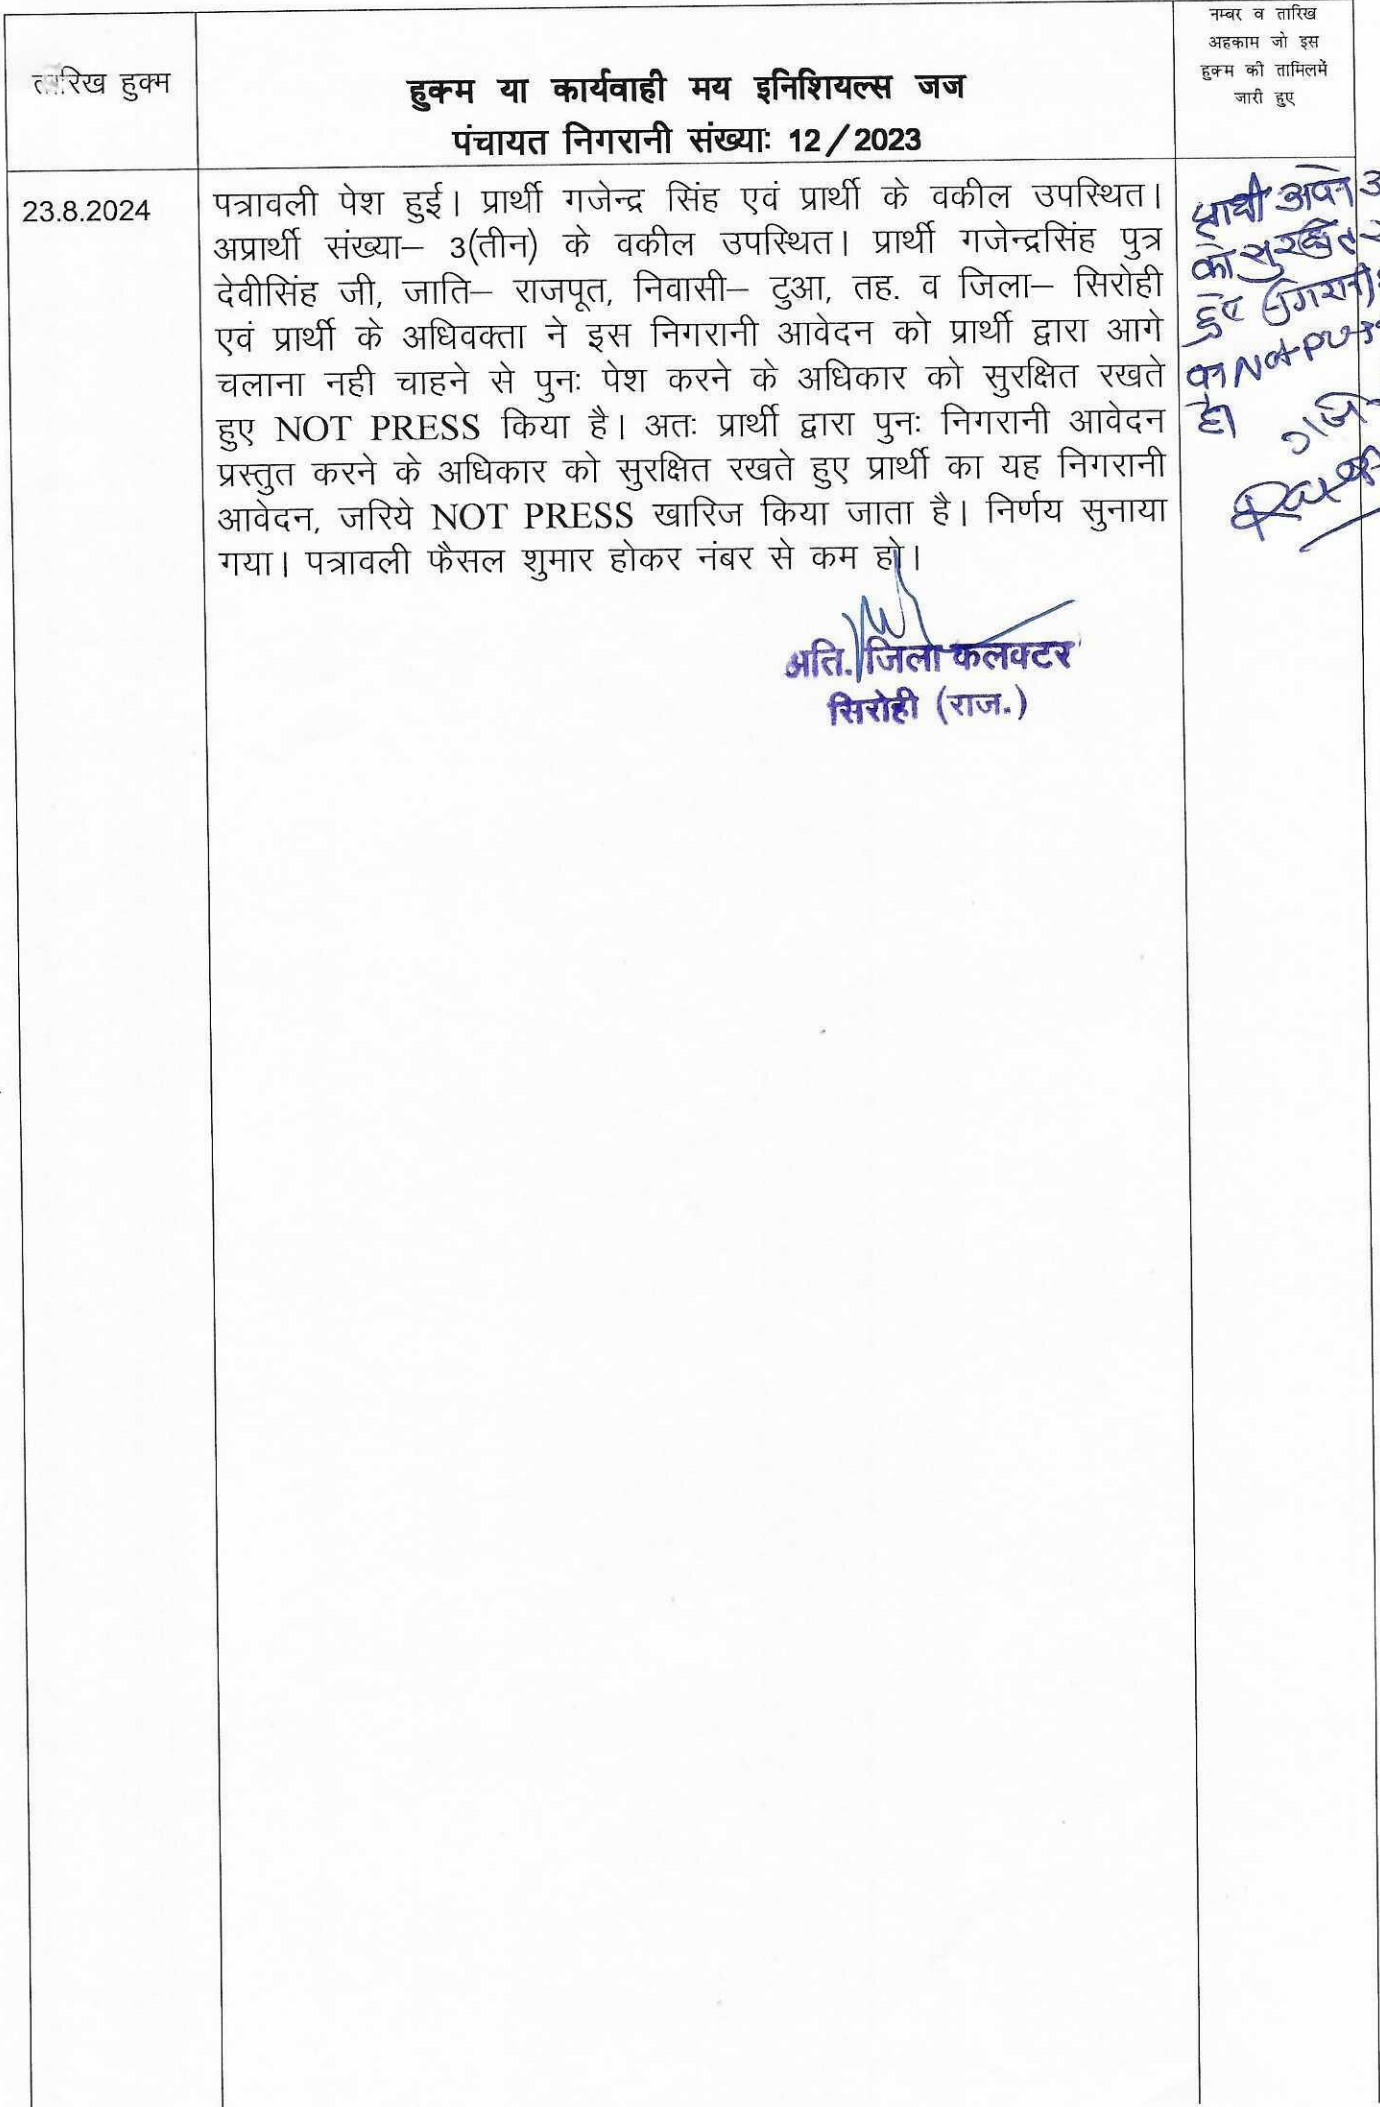 तारिख हुक्म
हुक्म या कार्यवाही मय इनिशियल्स जज
पंचायत निगरानी संख्याः 12/2023
नम्बर व तारिख
अहकाम जो इस
हुक्म की तामिलमें
जारी हुए
23.8.2024
पत्रावली पेश हुई। प्रार्थी गजेन्द्र सिंह एवं प्रार्थी के वकील उपस्थित।
अप्रार्थी संख्या– 3(तीन) के वकील उपस्थित। प्रार्थी गजेन्द्रसिंह पुत्र
देवीसिंह जी, जाति– राजपूत, निवासी– टुआ, तह. व जिला– सिरोही
एवं प्रार्थी के अधिवक्ता ने इस निगरानी आवेदन को प्रार्थी द्वारा आगे
चलाना नही चाहने से पुनः पेश करने के अधिकार को सुरक्षित रखते
हुए NOT PRESS किया है। अतः प्रार्थी द्वारा पुनः निगरानी आवेदन
प्रस्तुत करने के अधिकार को सुरक्षित रखते हुए प्रार्थी का यह निगरानी
आवेदन, जरिये NOT PRESS खारिज किया जाता है। निर्णय सुनाया
गया। पत्रावली फैसल शुमार होकर नंबर से कम हो।
अति. जिला कलक्टर
सिरोही (राज.)
प्रार्थी अपने
को सुरक्षित
हुए निगरानी
का Not
है।